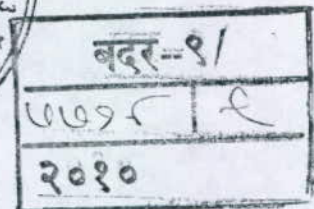 बदर--९/
७७१८ | ९
२०१०